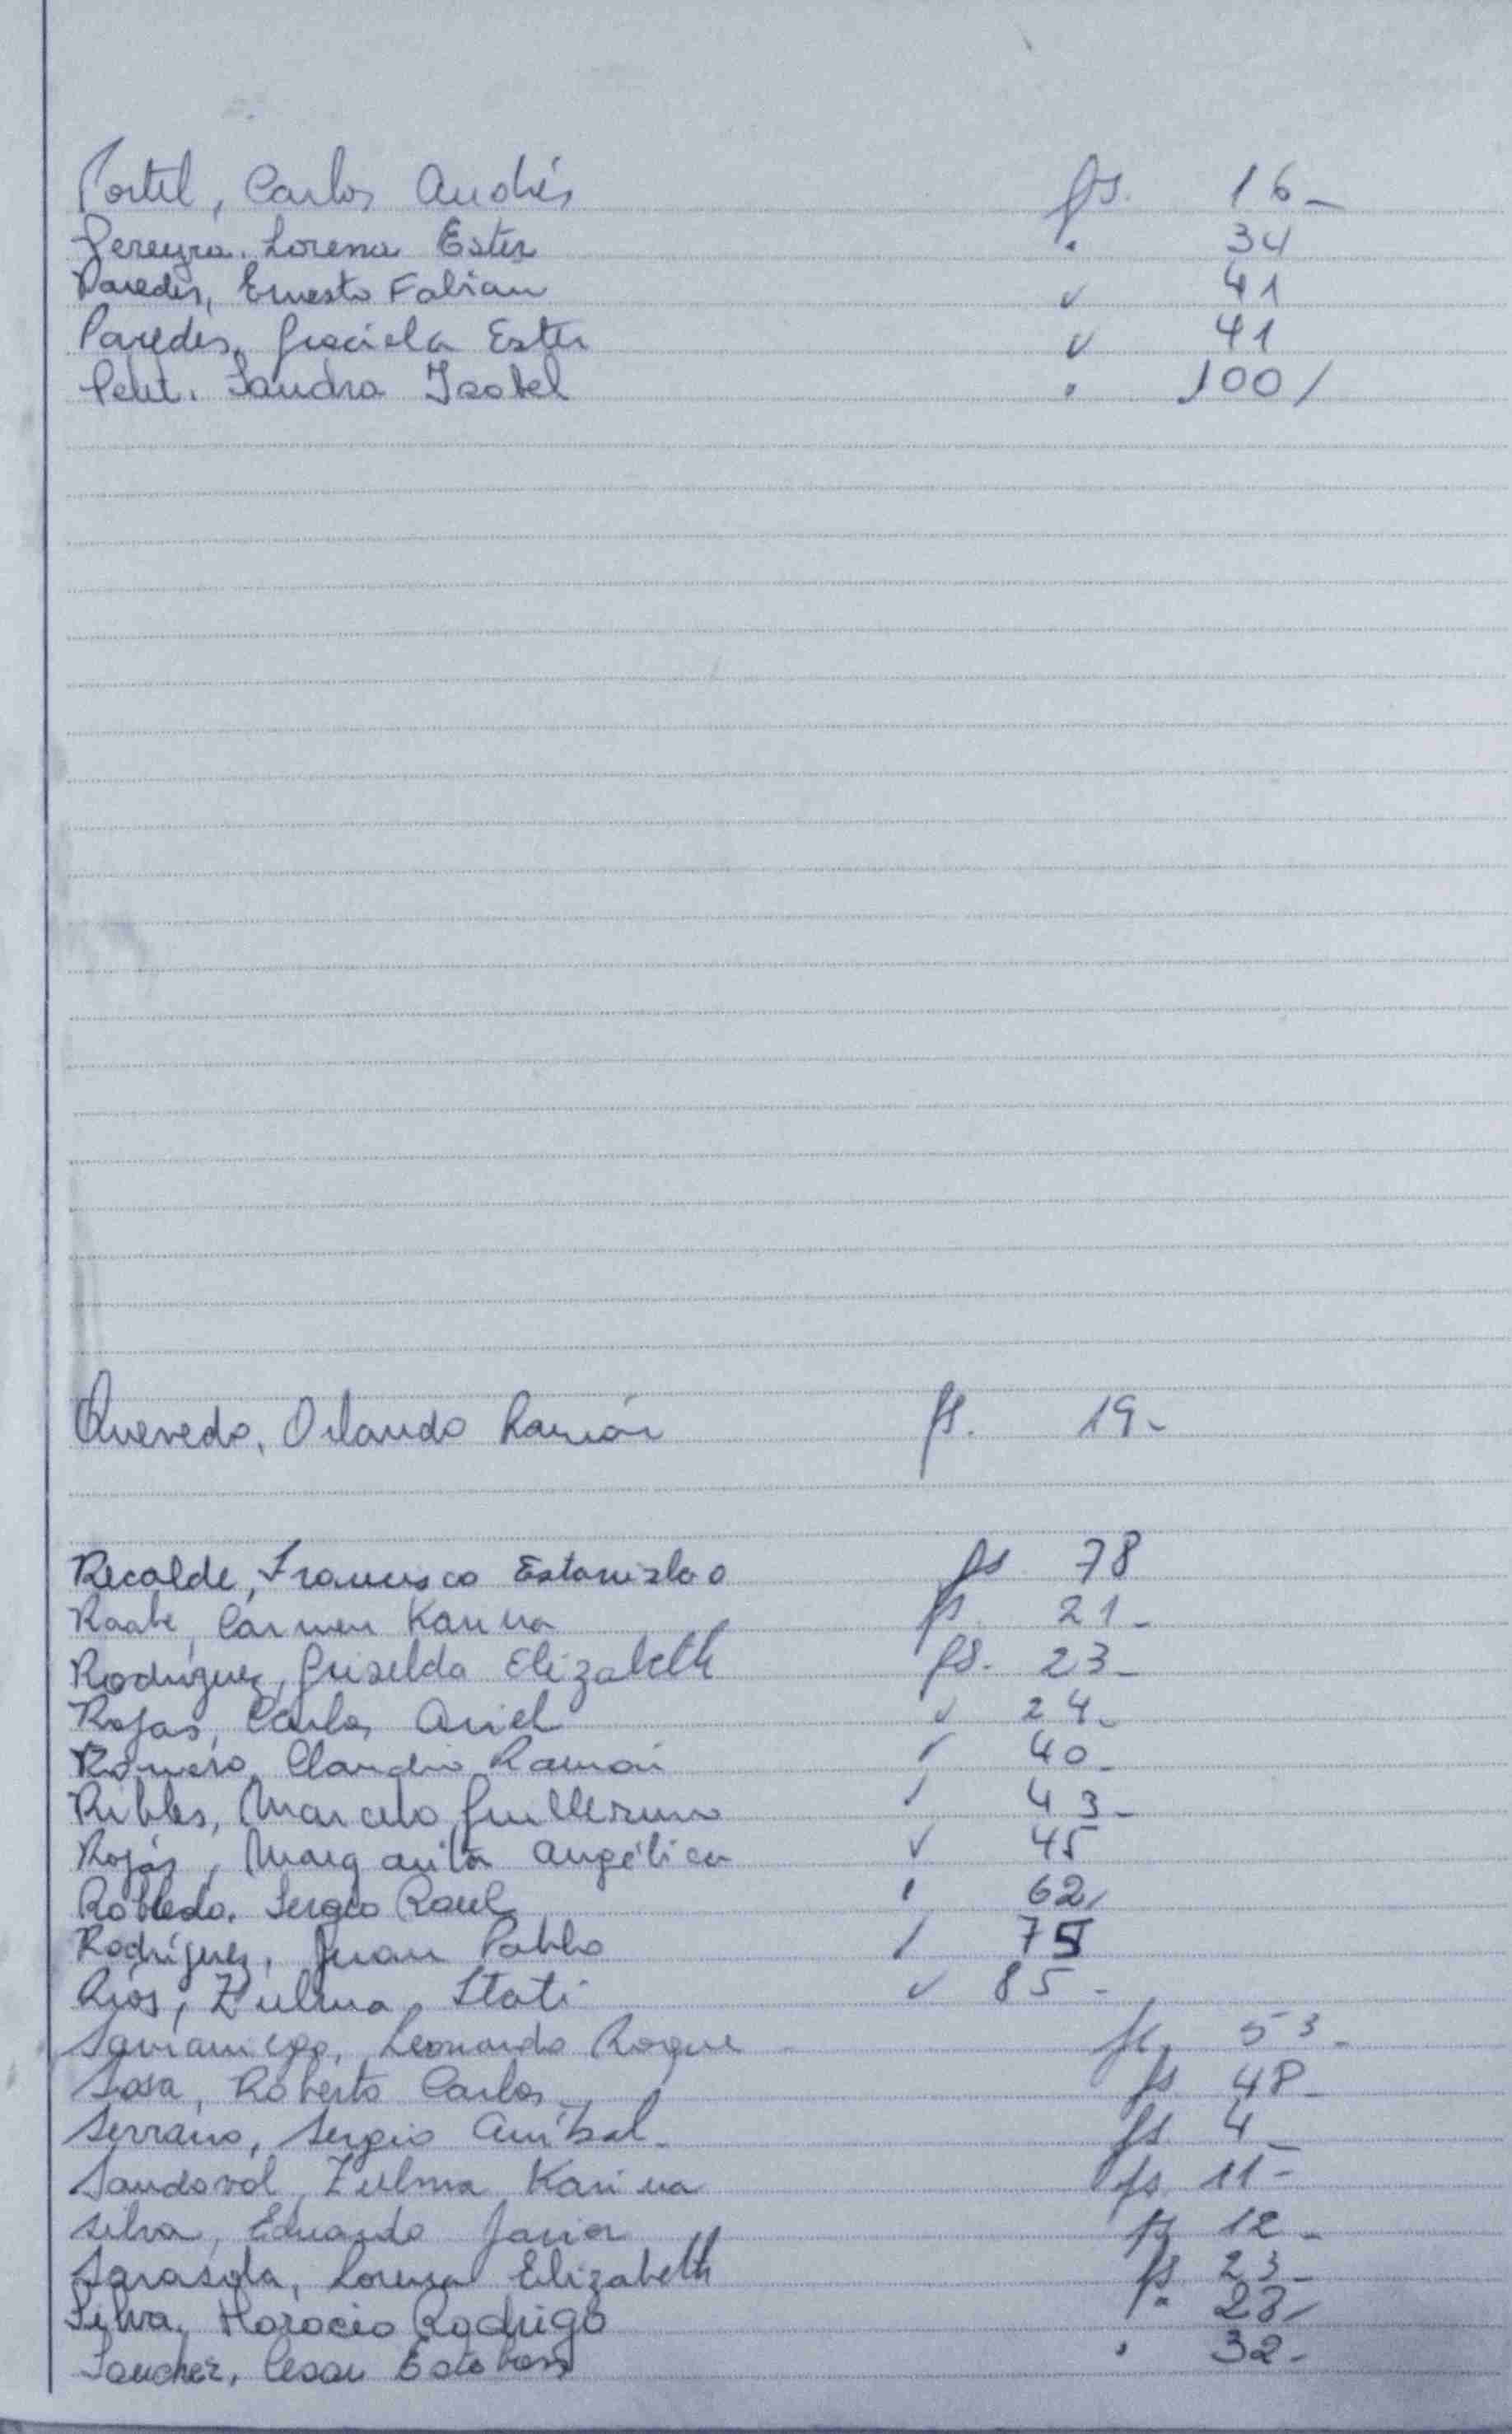 Portel, Carlos Andrés fs. 16-
Pereyra, Lorena Ester " 34
Paredes, Ernesto Fabian " 41
Paredes, Graciela Ester " 41
Sandra Isabel " 100/
Quevedo, Orlando Ramón fs. 19-
Recalde, Francisco Estanislao fs 78
Raabe, Carmen Karina fs. 21-
Rodriguez, Griselda Elizabeth fs. 23-
Rojas, Carlos Ariel " 24-
Romero, Claudio Ramón " 40-
Marcelo Guillermo " 43-
Rojas, Margarita Angélica " 45
Robledo, Sergio Raul " 62/
Rodríguez, Juan Pablo " 75
Ríos, Zulma Itati " 85-
Samaniego, Leonardo Roque fs 53-
Sosa, Roberto Carlos fs 48-
Serrano, Sergio Aníbal- fs. 4-
Sandoval, Zulma Karina fs. 11-
Silva, Eduardo Javier fs 12-
Sarasola, Lorena Elizabeth fs 23-
Silva, Horacio Rodrigo " 28/
Sanchez, Cesar Esteban " 32-